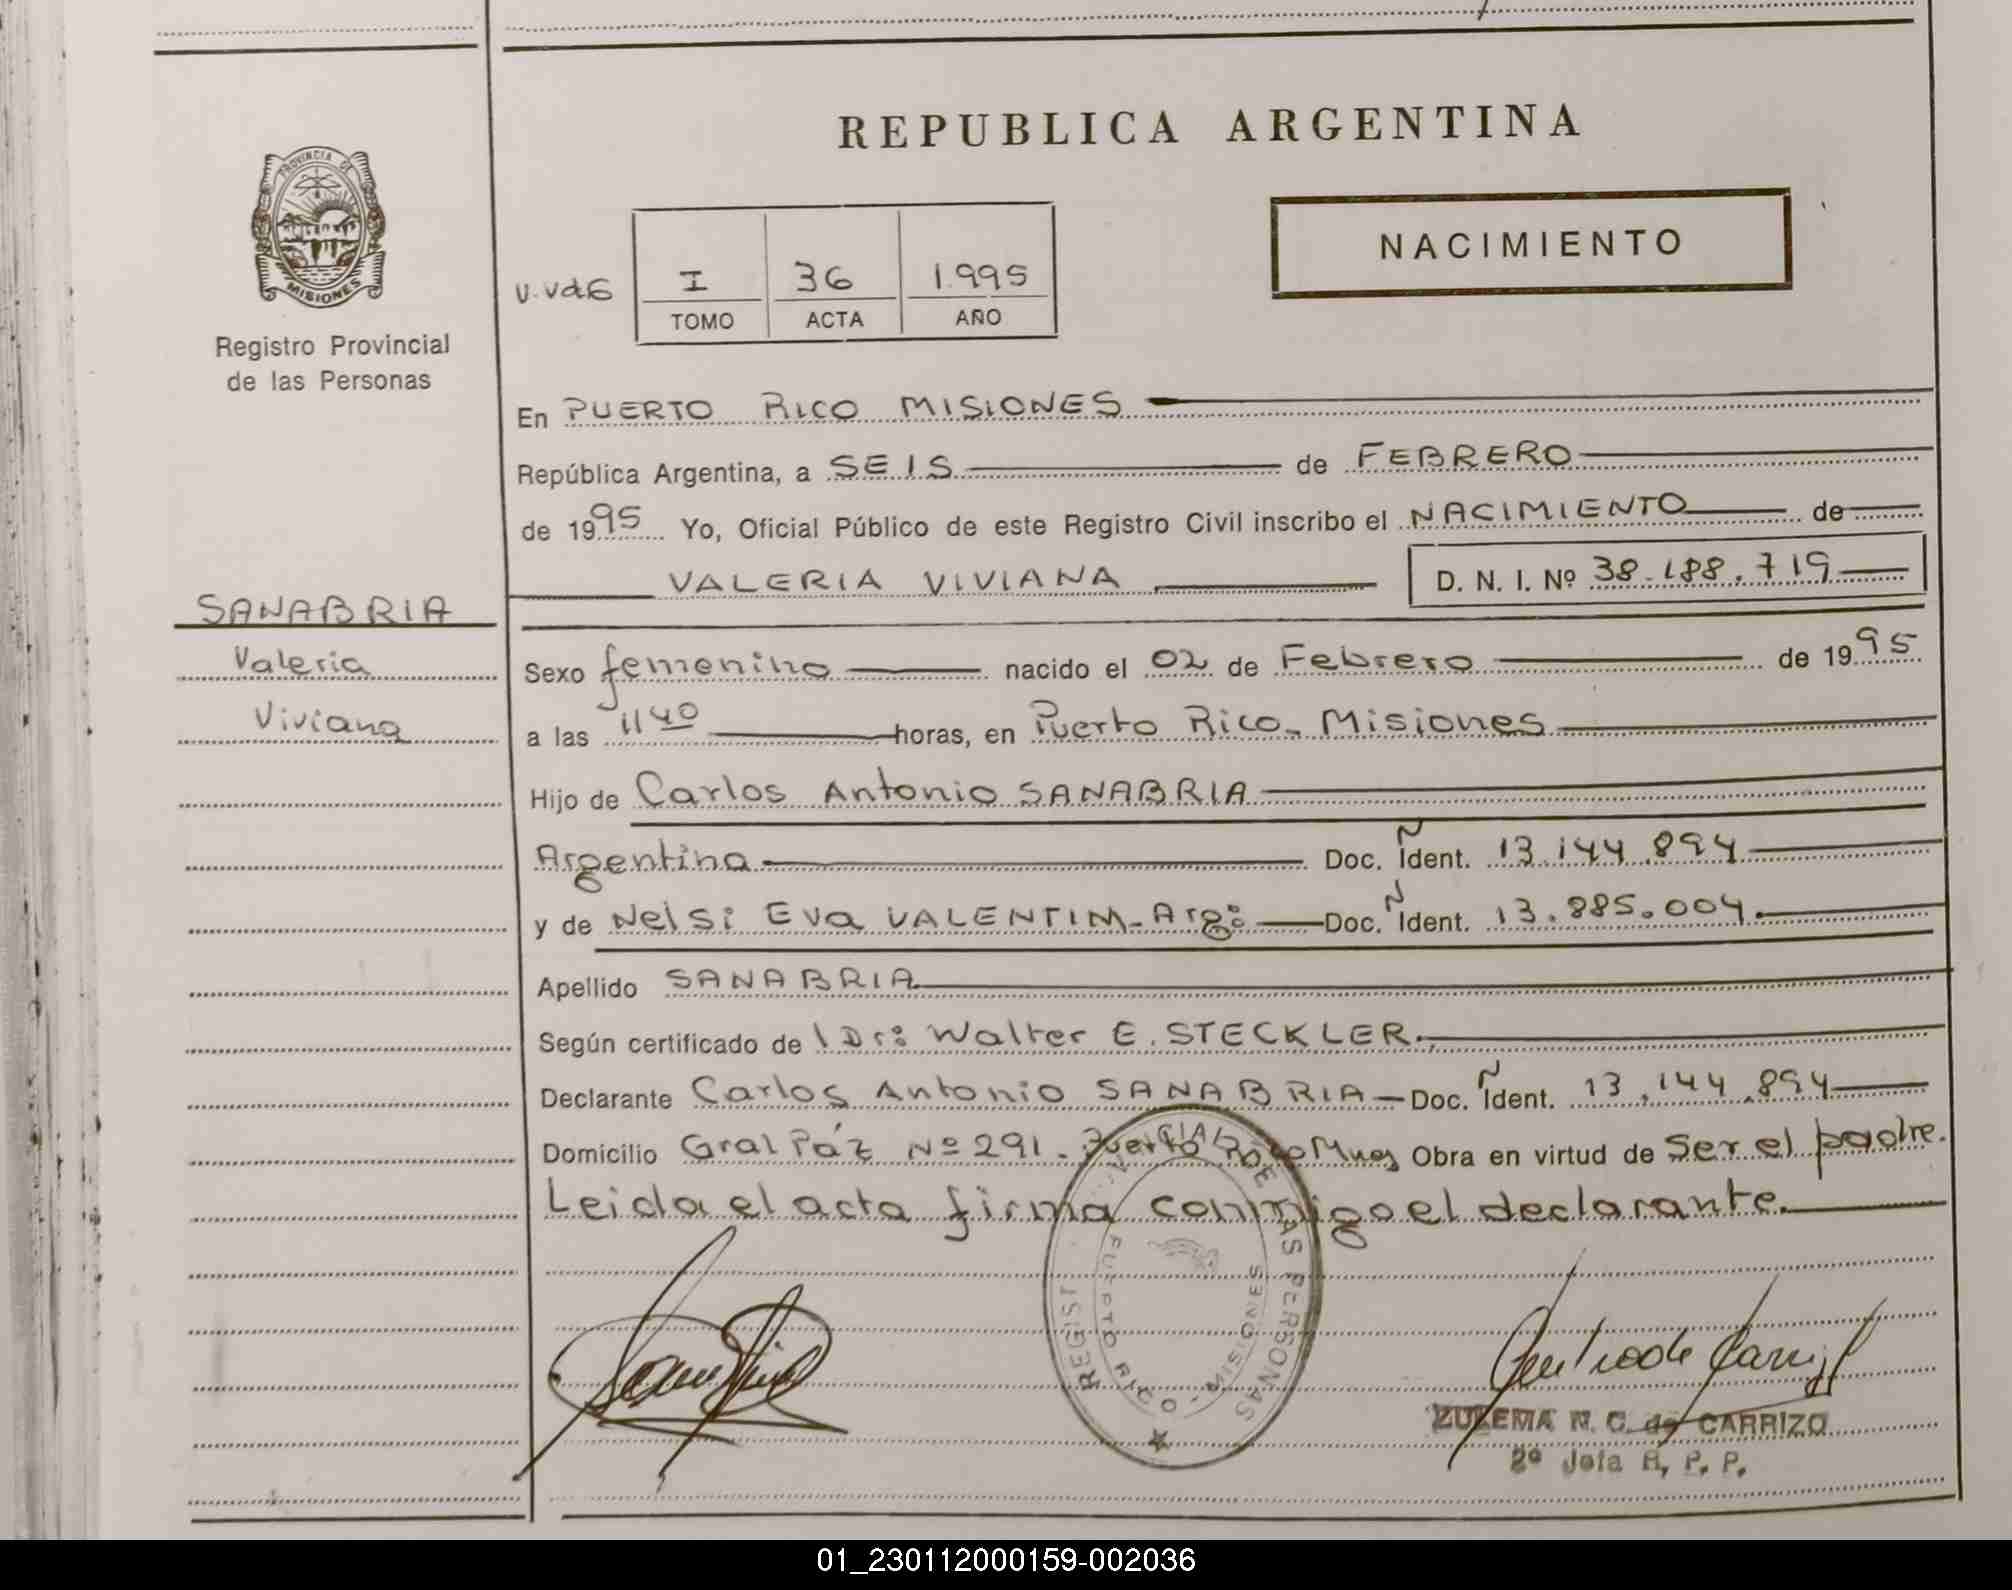 REPUBLICA ARGENTINA
PROVINCIA DE MISIONES
Registro Provincial
de las Personas
NACIMIENTO
I 36 1.995
TOMO ACTA AÑO
En PUERTO RICO MISIONES
República Argentina, a SEIS de FEBRERO
de 1995 Yo, Oficial Público de este Registro Civil inscribo el NACIMIENTO de
VALERIA VIVIANA D. N. I. Nº 38.188.719
SANABRIA
Valeria
Viviana
Sexo femenino nacido el 02 de Febrero de 1995
a las 11 40 horas, en Puerto Rico - Misiones
Hijo de Carlos Antonio SANABRIA
Argentina Doc. Ident. 13.144.894
y de Nelsi Eva VALENTIM - Arg: Doc. Ident. 13.885.004
Apellido SANABRIA
Según certificado de l Dr: Walter E. STECKLER
Declarante Carlos Antonio SANABRIA Doc. Ident. 13.144.894
Domicilio Gral Páz Nº 291 - Puerto Rico Mnes Obra en virtud de Ser el padre.
Leida el acta firma conmigo el declarante.
REGIST CIAL DE LAS PERSONAS
PUERTO RICO - MISIONES
ZULEMA N. C. de CARRIZO
2º Jefa R. P. P.
01_230112000159-002036